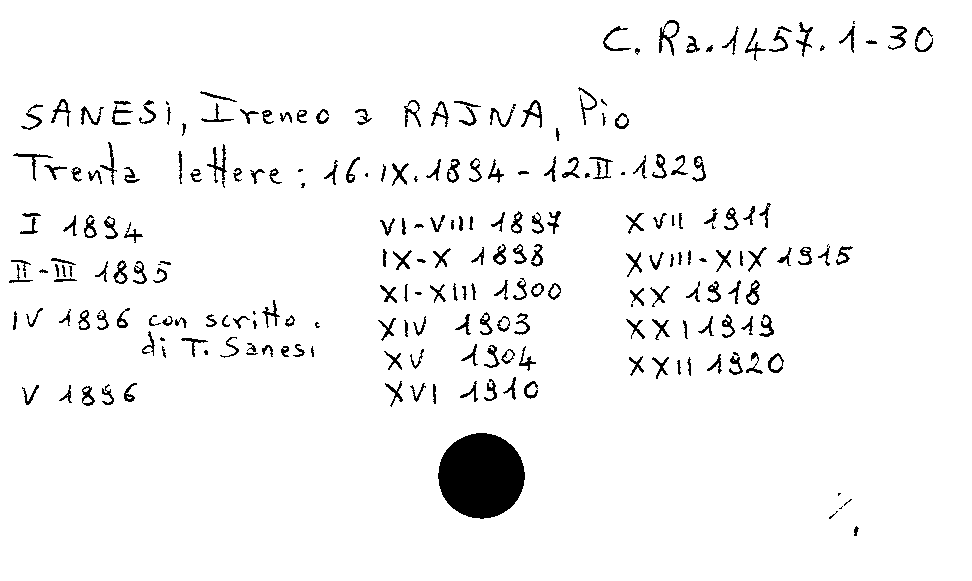 C. Ra. 1457. 1-30
SANESI, Ireneo a RAJNA, Pio
Trenta lettere: 16.IX.1894 - 12.II.1929
I 1894
II-III 1895
IV 1896 con scritto
di T. Sanesi
V 1896
VI-VIII 1897
IX-X 1898
XI-XIII 1900
XIV 1903
XV 1904
XVI 1910
XVII 1911
XVIII-XIX 1915
XX 1918
XXI 1919
XXII 1920